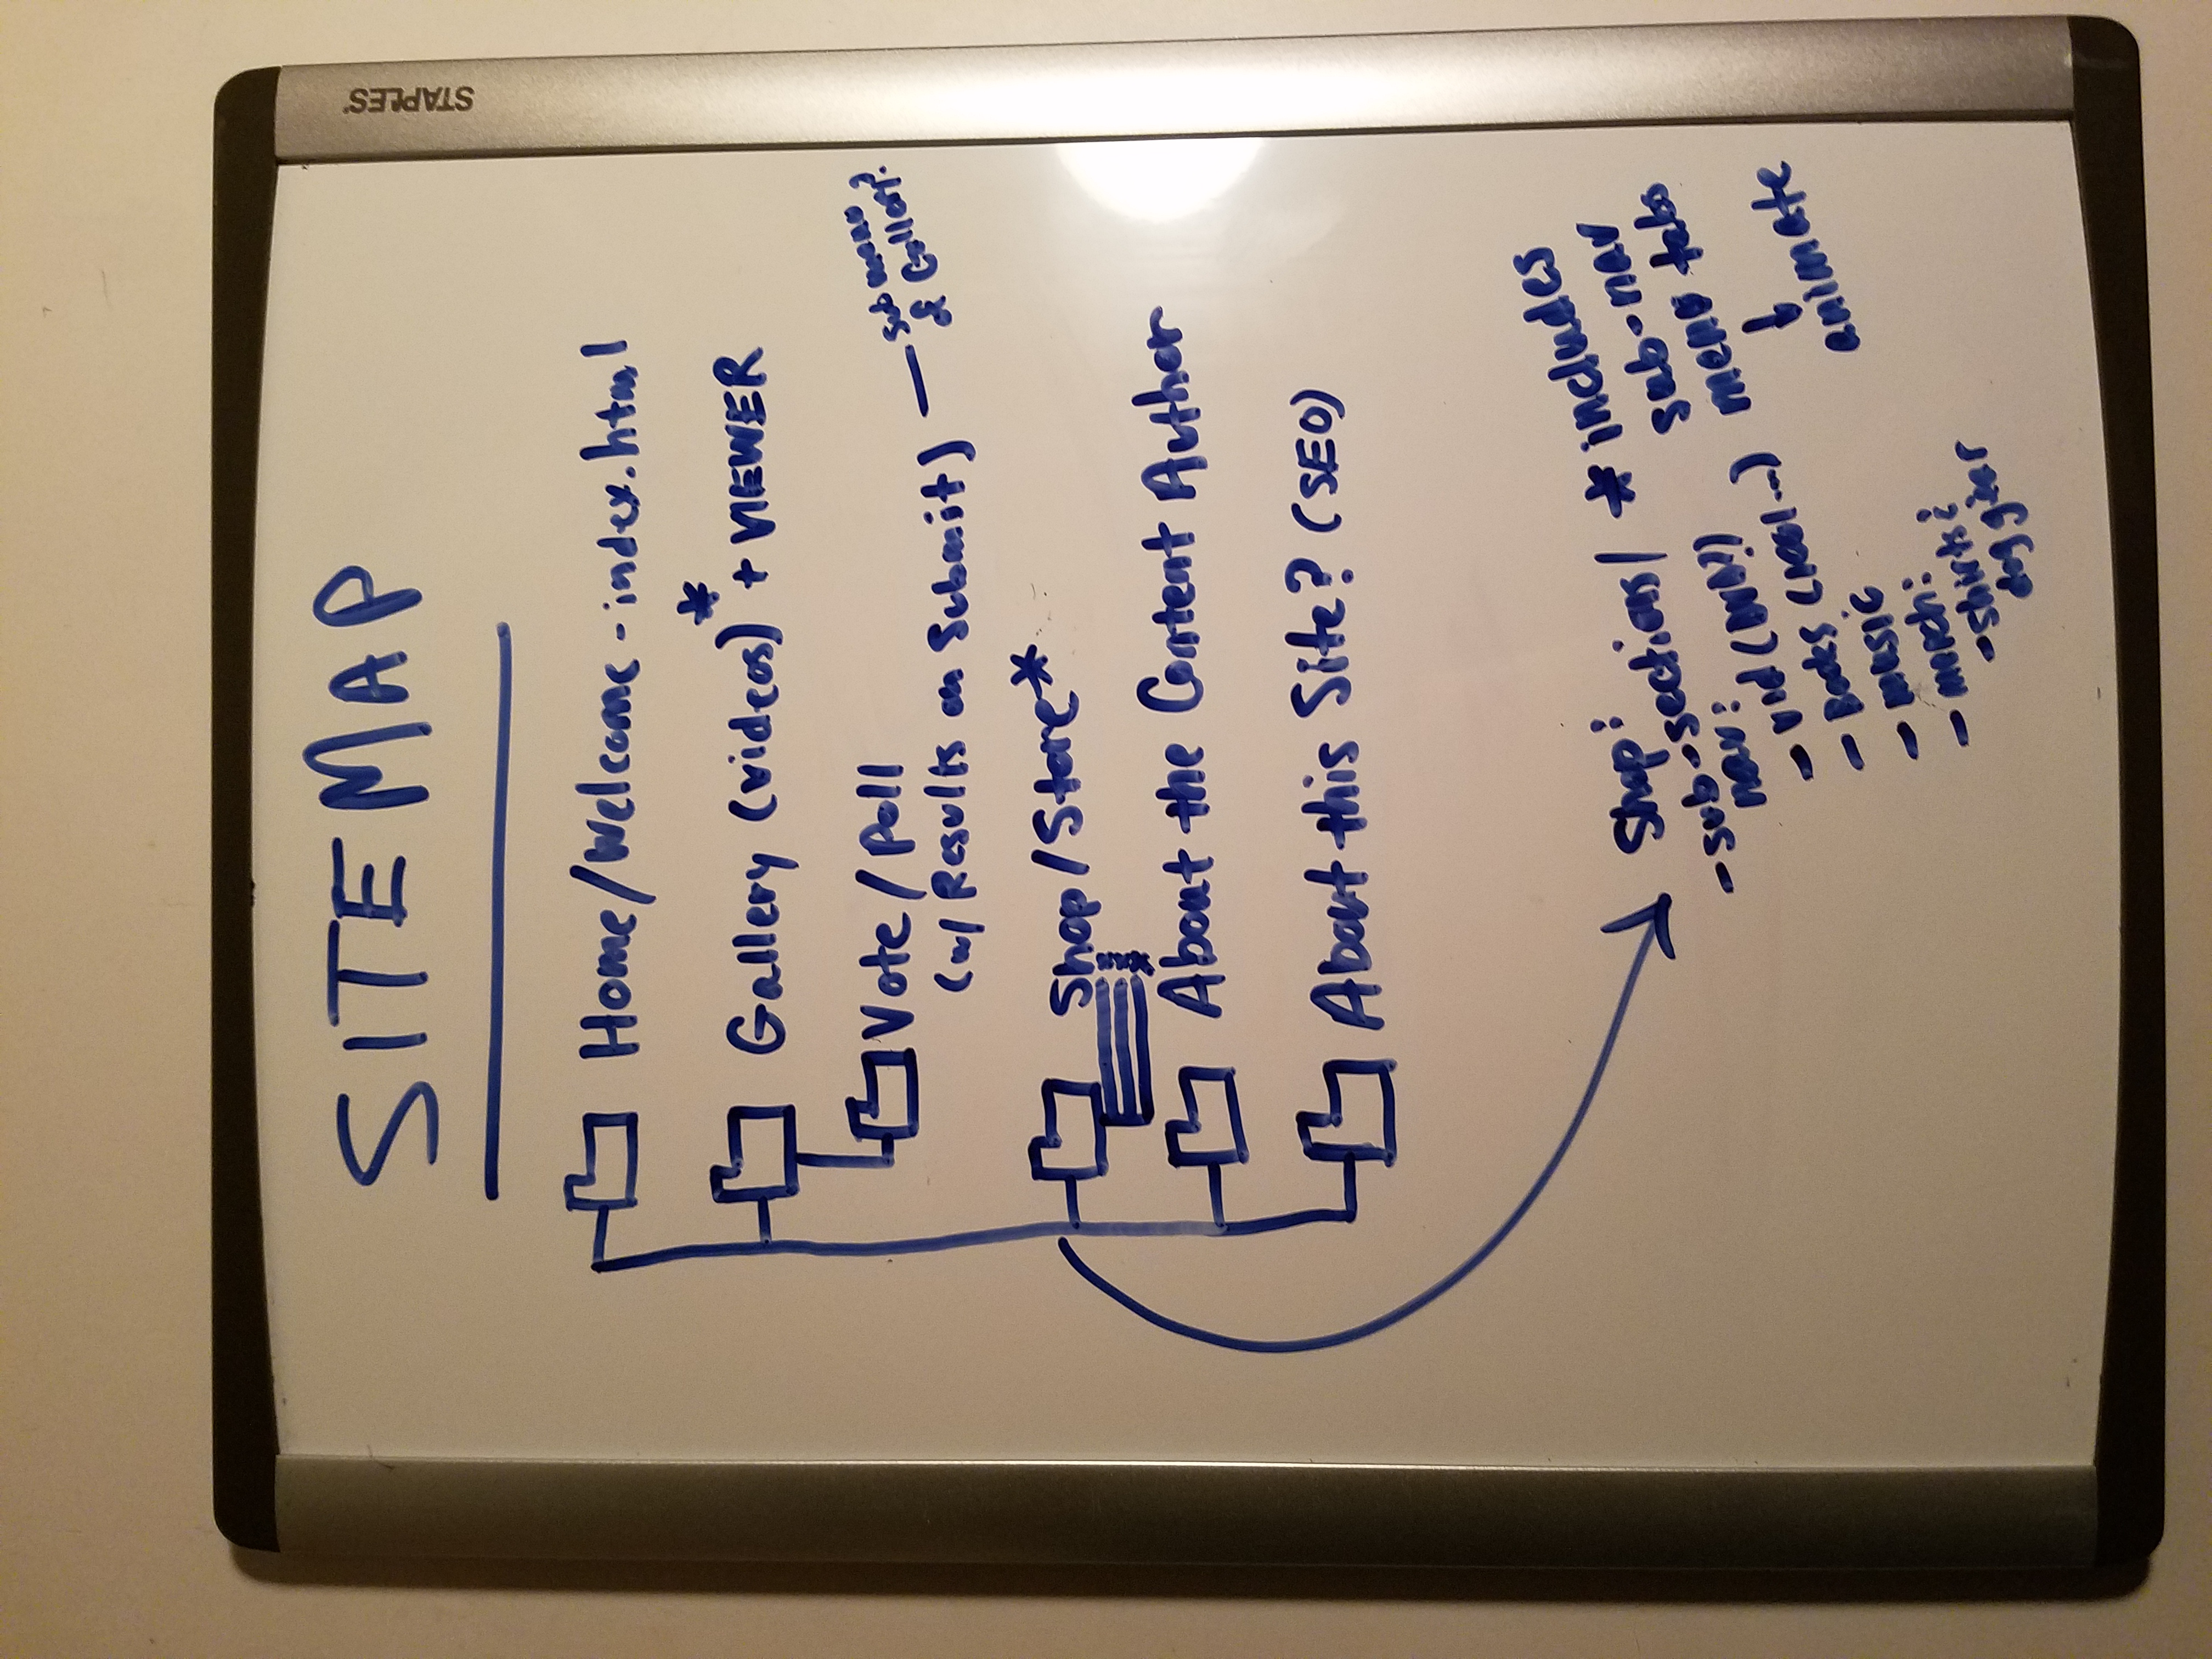 SITEMAP
Home/Welcome - index.html
Gallery (videos)* + VIEWER
Vote / Poll
(w/ Results on Submit) — sub menu
of Gallery?
Shop / Store*
About the Content Author
About this Site? (SEO)
Shop:
- sub-sections/
nav:
- vid (DVD?)
- Books (1001...)
- music
- merch:
- shirts
dog gear
* includes
sub-nav
menu tabs
↓
animate
STAPLES